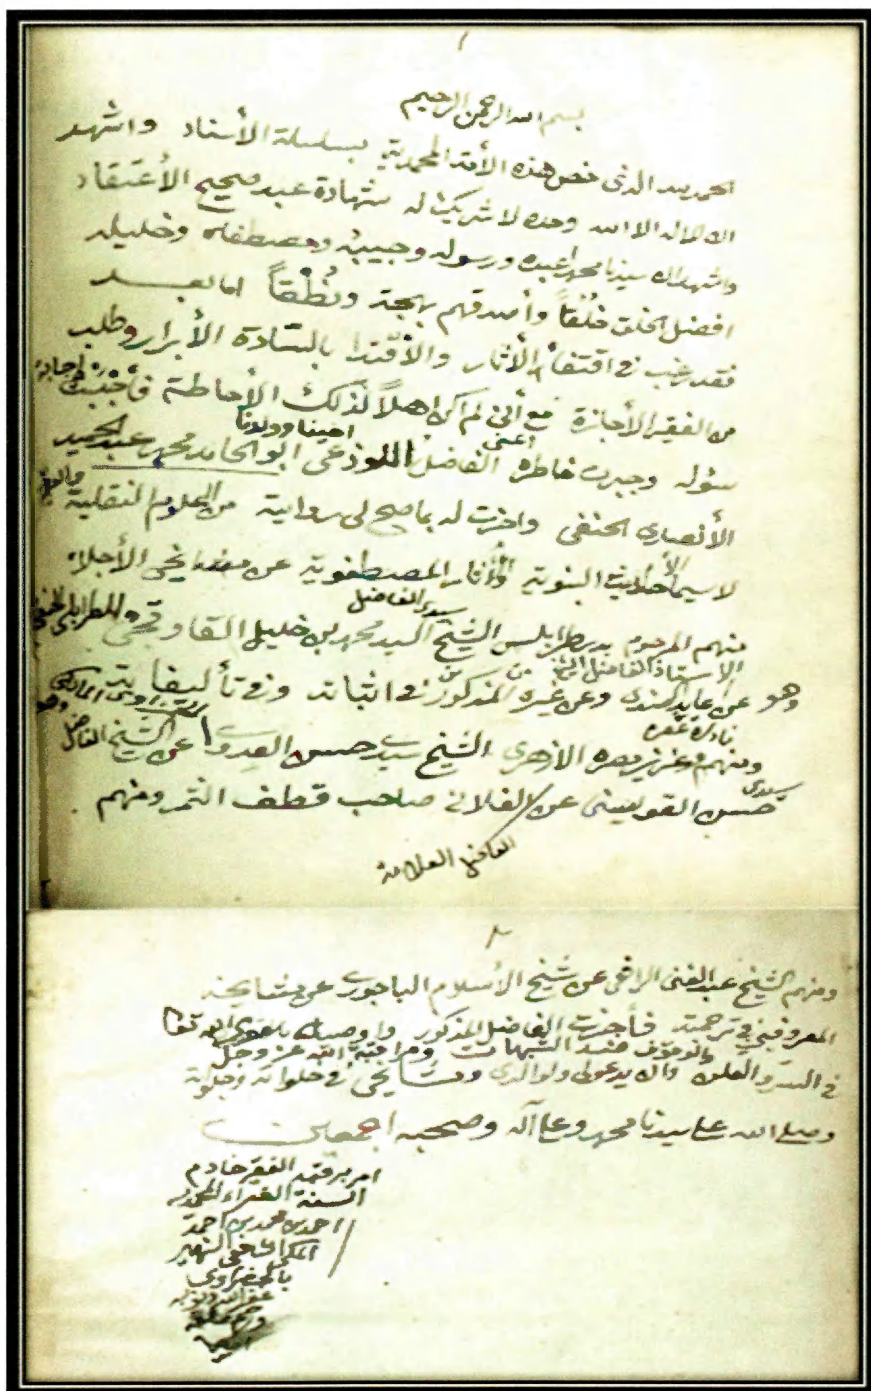 ١
بسم الله الرحمن الرحيم
الحمد لله الذي خص هذه الأمة المحمدية بسلسلة الأسناد واشهد
ان لا اله الا الله وحده لا شريك له شهادة عبد صحيح الأعتقاد
واشهد ان سيدنا محمدا عبده ورسوله وحبيبه ومصطفاه وخليله
افضل الخلق خُلُقاً وأصدقهم بهجة ونُطْقاً اما بعد
فقد رغب في اقتفاء الأثار والأقتدا بالسادة الأبرار وطلب
من الفقير الأجازة مع أنى لم اكن اهلاً لذلك الأحاطة فأجبت لإجابة
سؤله وجبرت خاطره أعنى الفاضل اللوذعى احينا وولدنا ابو الحامد محمد عبد الحميد
الأنصارى الحنفى واجزت له بما صح لى روايته من العلوم النقلية
لاسيما الأحاديث النبوية والأثار المصطفوية عن مشايخى الأجلاء
منهم المرحوم بدر طرابلس الشيخ سيدى الفاضل السيد محمد بن خليل القاوقجى الطرابلى الحنفى
وهو عن الاستاذ الفاضل الشيخ عابد السندى وعن غيره من المذكورين في اثباته وفي تأليفاته
ومنهم عزيز مصره نادرة عصره الأزهرى الشيخ سيدى حسن العدوى المالكى وهو عن الشيخ الفاضل
سيدى حسن القويسنى عن الفاضل العلامة الفلانى صاحب قطف الثمر ومنهم
٢
ومنهم الشيخ عبد الغنى الرافعى عن شيخ الأسلام الباجورى عن مشايخه
المعروفين في ترجمته فأجزت الفاضل المذكور واوصيك بتقوى الله تعا
في السر والعلن والوقوف عند الشبهات ومراقبة الله عز وجل وان يدعو لى ولوالدى ومشايخى في خلواته وجلواته
وصلى الله على سيدنا محمد وعلى آله وصحبه اجمعين
امر برقمه الفقير خادم
السنة الغراء المحمدية
احمد بن محمد بن احمد
المكى الشافعى الشهير
بالحضراوى